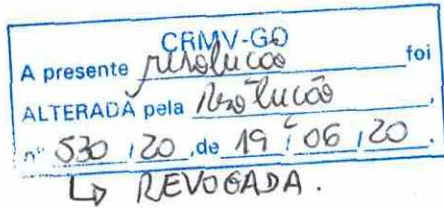 CRMV-GO
A presente resolução foi
ALTERADA pela Resolução,
nº 530 / 20, de 19 / 06 / 20.
↳ REVOGADA.